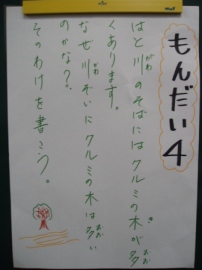 もんだい4
はと川のそばにはクルミの木が多
くあります。
なぜ川ぞいにクルミの木は多い
のかな?
そのわけを書こう。
がわ
き
おお
かわ
おお